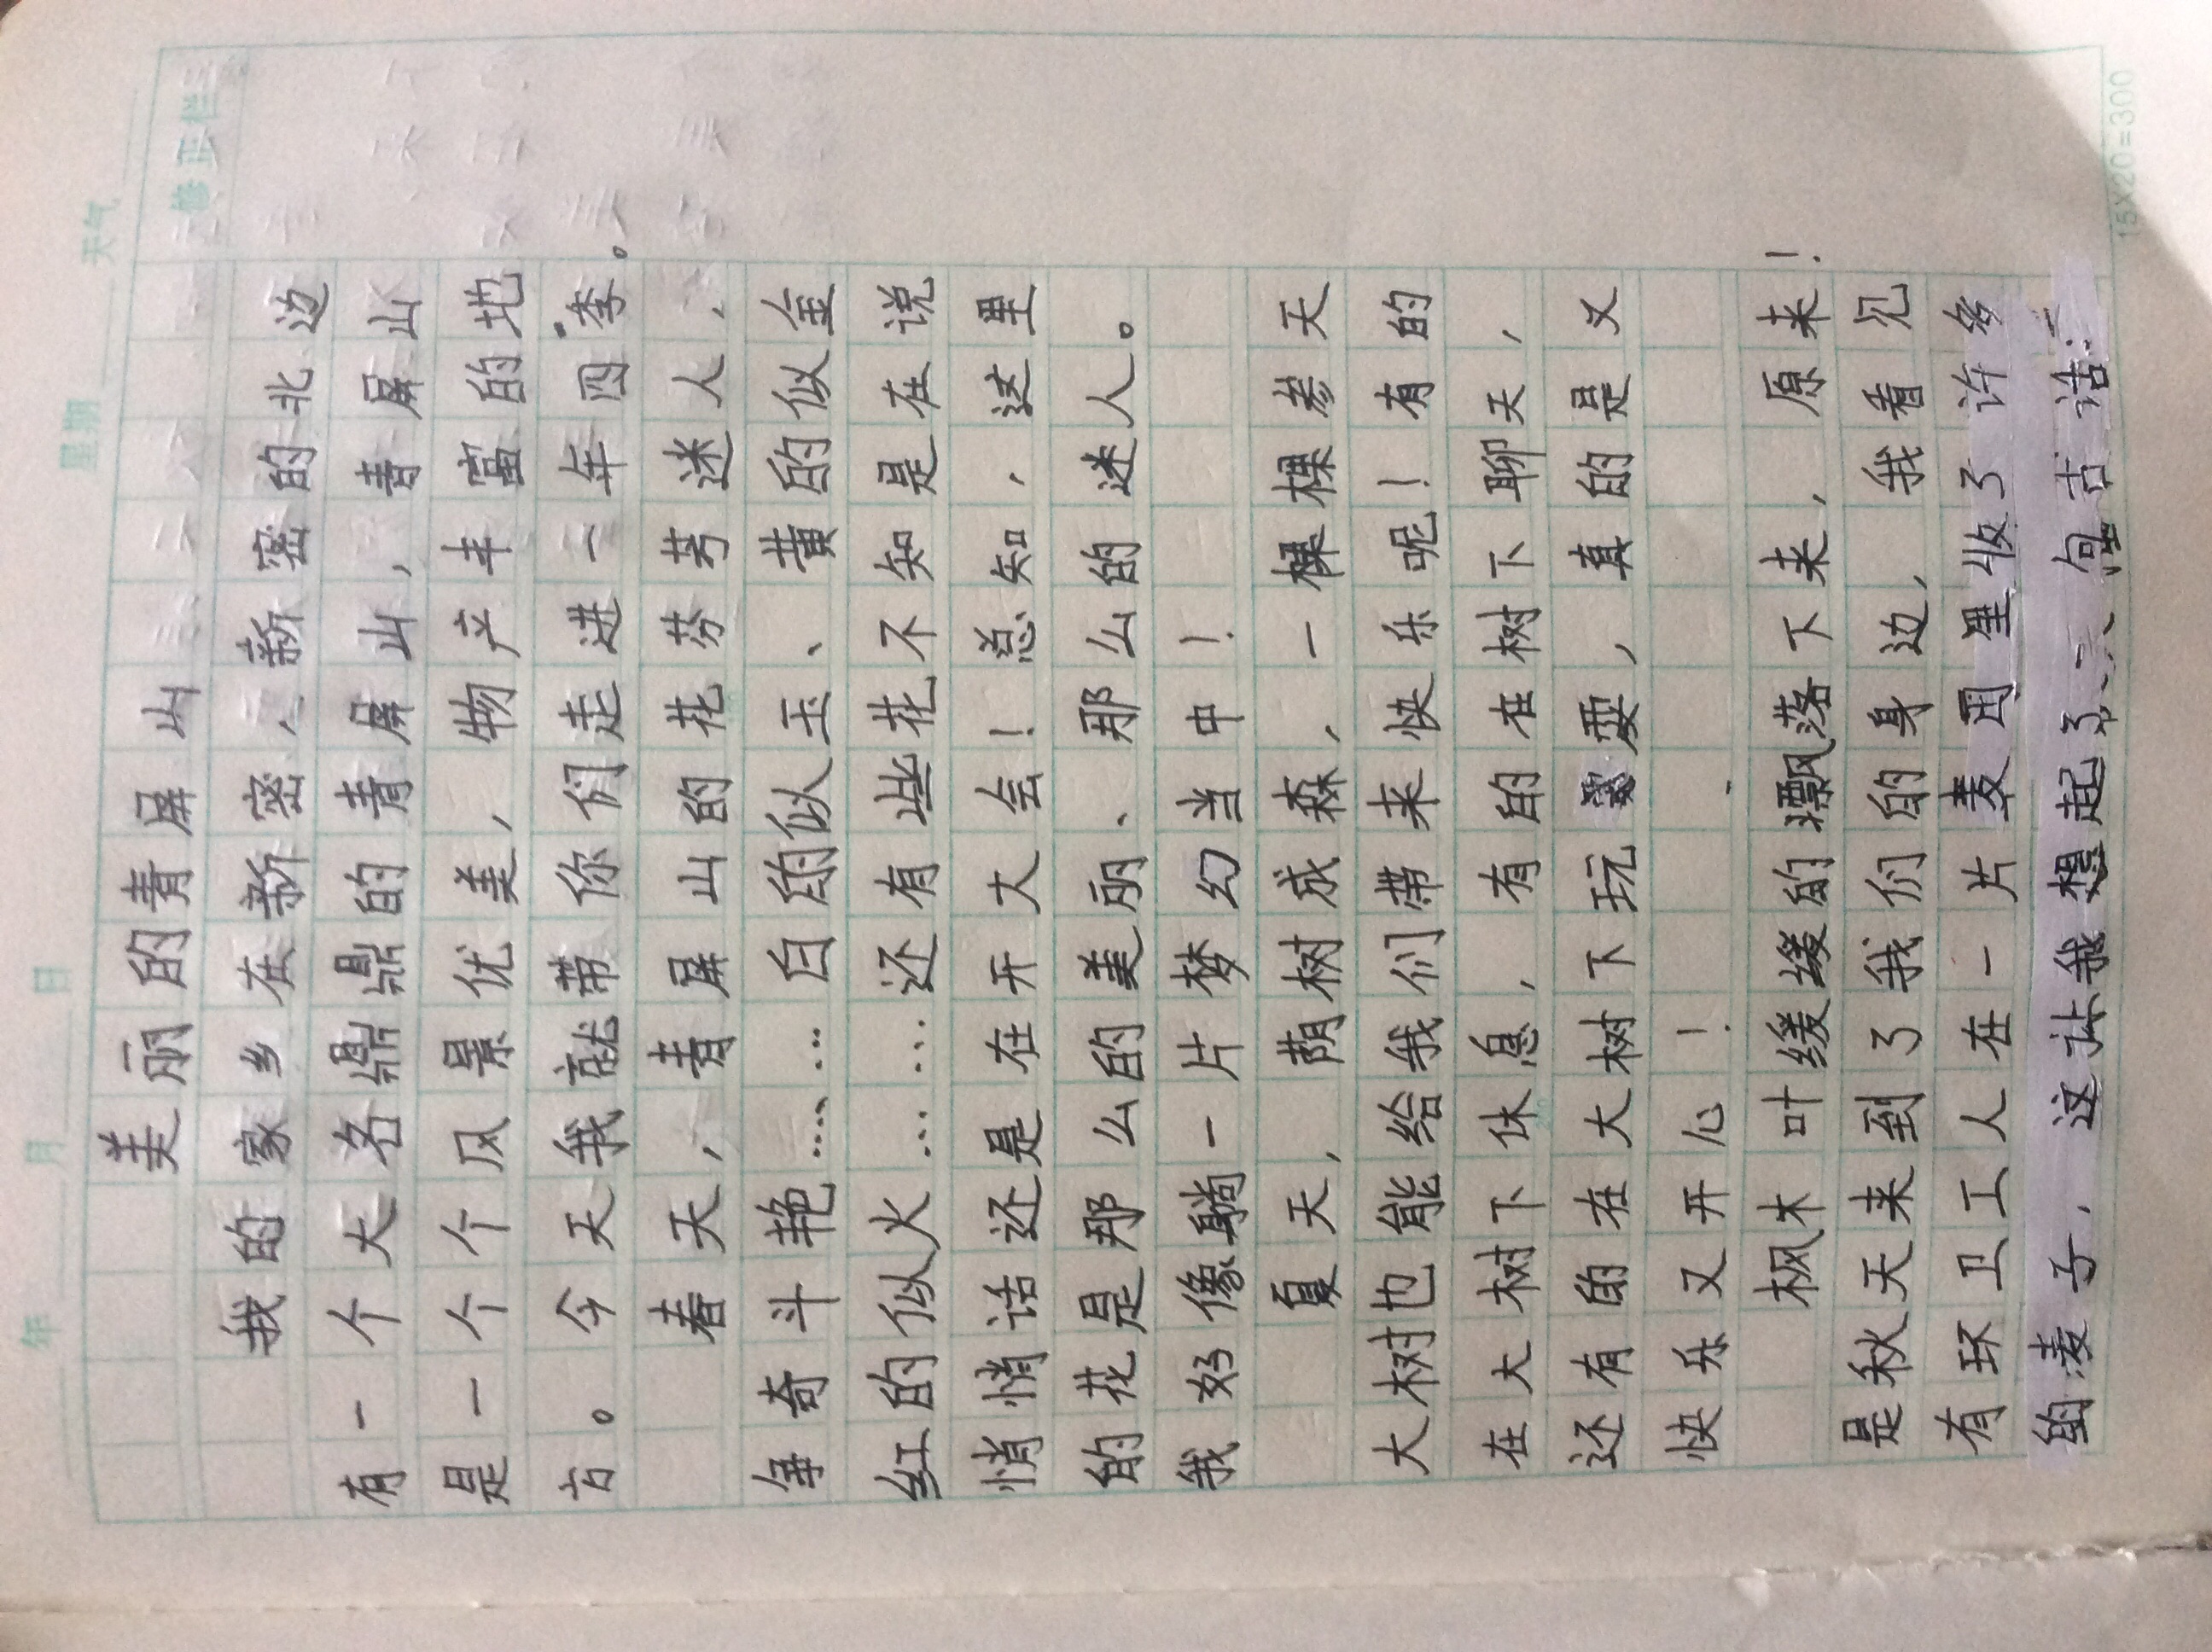 年 月 日 星期 天气
修正栏
美丽的青屏山
我的家乡在新密，新密的北边
有一个大名鼎鼎的青屏山，青屏山
是一个个风景优美，物产丰富的地
方。今天我就带你们走进一年四季。
春天，青屏山的花芬芳迷人，
争奇斗艳……白的似玉、黄的似金
红的似火……还有些花不知是在说
悄悄话还是在开大会！总知，这里
的花是那么的美丽、那么的迷人。
我好像躺一片梦幻当中！
夏天，荫树成森，一棵棵参天
大树也能给我们带来快乐呢！有的
在大树下休息，有的在树下聊天，
还有的在大树下玩耍，真的是又
快乐又开心！
枫木叶缓缓的漂落下来，原来！
是秋天来到了我们的身边，我看见
有环卫工人在一片麦田里收了许多
的麦子，这让我想起了一句古话：
15×20=300